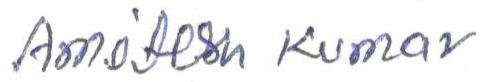 Amitesh Kumar